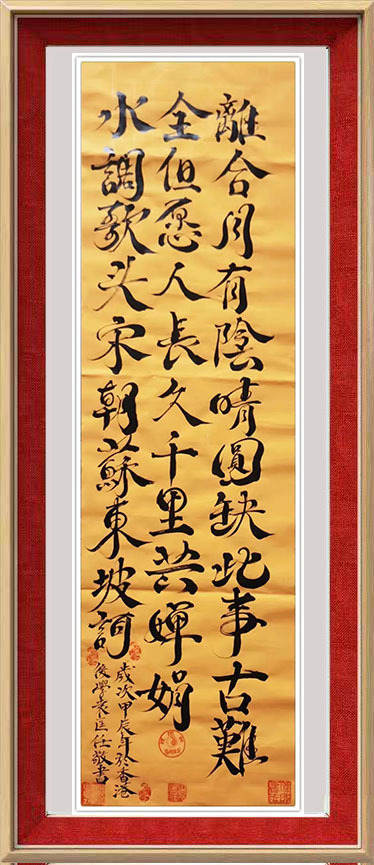 離合月有陰晴圓缺此事古難
全但愿人長久千里共嬋娟
水調歌头宋朝蘇東坡詞
歲次甲辰年於香港
後學袁匡仕敬書